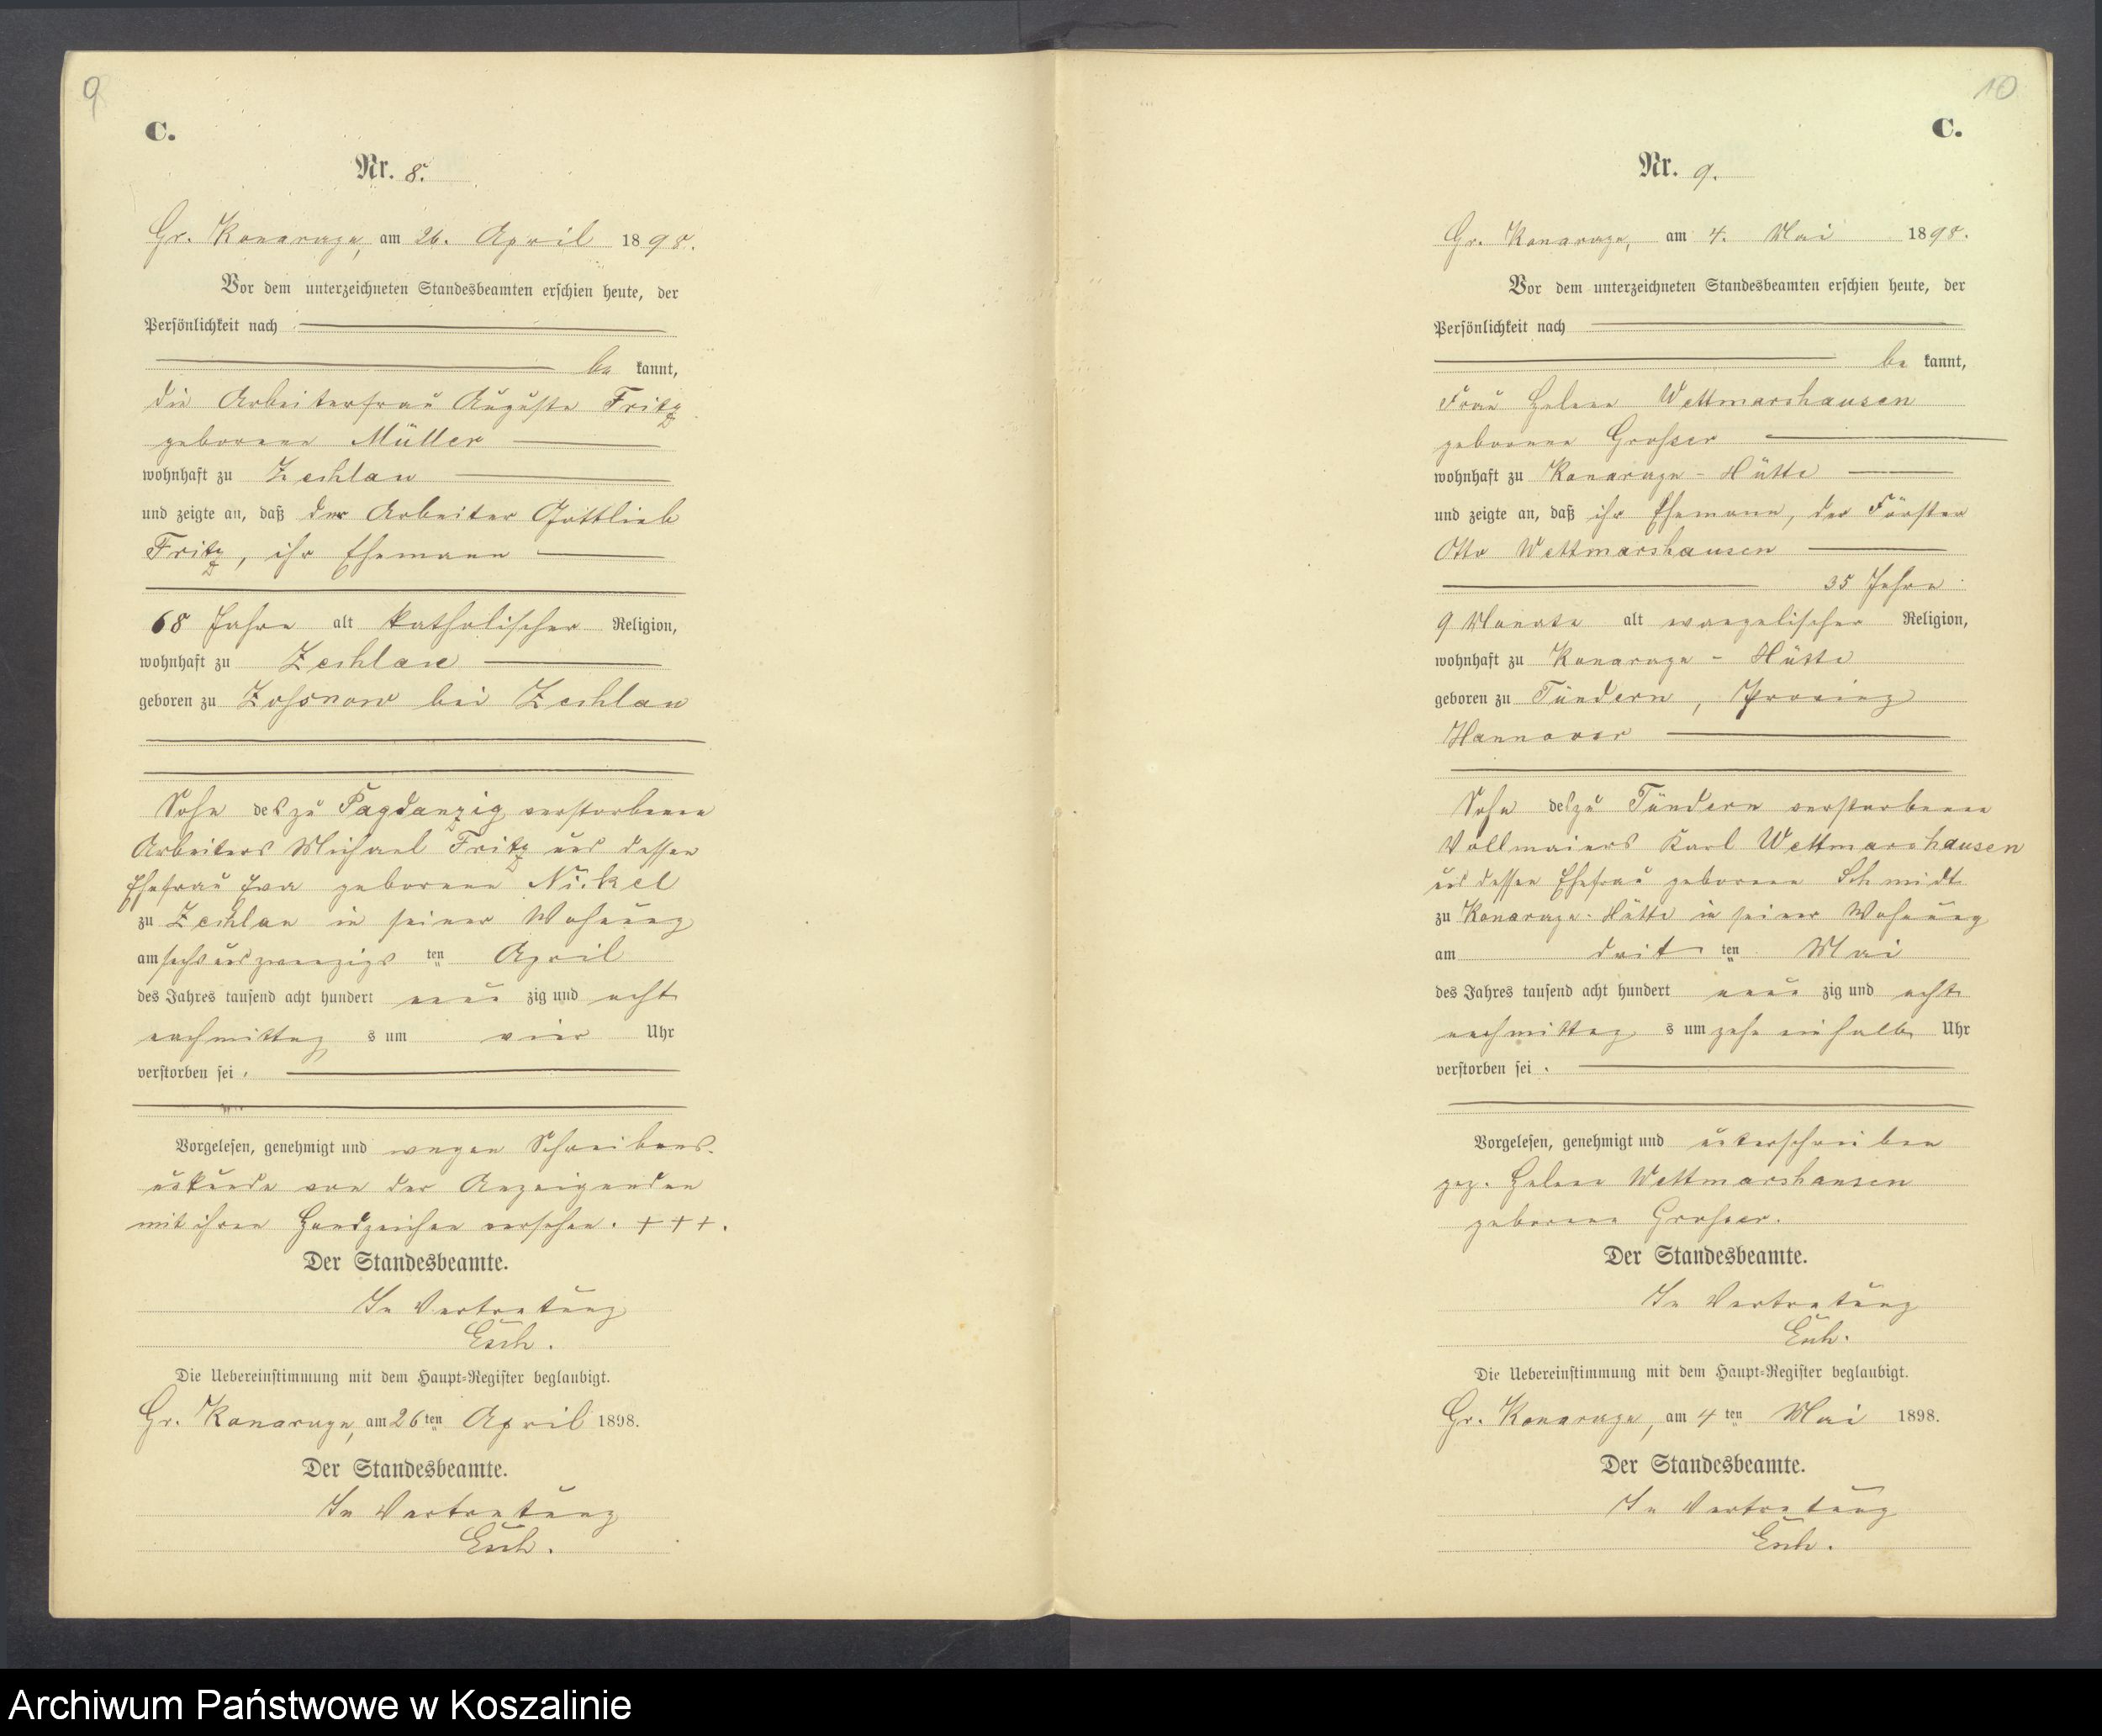 9
C.
Nr. 8.
Gr. Konarzyn, am 26. April 1898.
Vor dem unterzeichneten Standesbeamten erschien heute, der
Persönlichkeit nach
be kannt,
die Arbeiterfrau Auguste Fritz
geborene Müller
wohnhaft zu Zechlau
und zeigte an, daß der Arbeiter Gottlieb
Fritz, ihr Ehemann
68 Jahre alt katholischer Religion,
wohnhaft zu Zechlau
geboren zu Zossnow bei Zechlau
Sohn des zu Pagdanzig verstorbenen
Arbeiters Michael Fritz und dessen
Ehefrau Eva geborene Nickel
zu Zechlau in seiner Wohnung
am sechsundzwanzigs ten April
des Jahres tausend acht hundert neun zig und acht
nachmittag s um vier Uhr
verstorben sei.
Vorgelesen, genehmigt und wegen Schreibens-
unkunde von der Anzeigenden
mit ihren Handzeichen versehen. +++.
Der Standesbeamte.
In Vertretung
Esch.
Die Uebereinstimmung mit dem Haupt-Register beglaubigt.
Gr. Konarzyn, am 26 ten April 1898.
Der Standesbeamte.
In Vertretung
Esch.
10
C.
Nr. 9.
Gr. Konarzyn, am 4. Mai 1898.
Vor dem unterzeichneten Standesbeamten erschien heute, der
Persönlichkeit nach
be kannt,
Frau Helene Wettmarshausen
geborene Grosser
wohnhaft zu Konarzyn-Hütte
und zeigte an, daß ihr Ehemann, der Förster
Otto Wettmarshausen
35 Jahre
9 Monate alt evangelischer Religion,
wohnhaft zu Konarzyn-Hütte
geboren zu Tündern, Provinz
Hannover
Sohn des zu Tündern verstorbenen
Vollmaiers Karl Wettmarshausen
und dessen Ehefrau geborene Schmidt
zu Konarzyn-Hütte in seiner Wohnung
am drit ten Mai
des Jahres tausend acht hundert neun zig und acht
nachmittag s um zehn ein halb Uhr
verstorben sei.
Vorgelesen, genehmigt und unterschrieben
gez. Helene Wettmarshausen
geborene Grosser.
Der Standesbeamte.
In Vertretung
Esch.
Die Uebereinstimmung mit dem Haupt-Register beglaubigt.
Gr. Konarzyn, am 4 ten Mai 1898.
Der Standesbeamte.
In Vertretung
Esch.
Archiwum Państwowe w Koszalinie